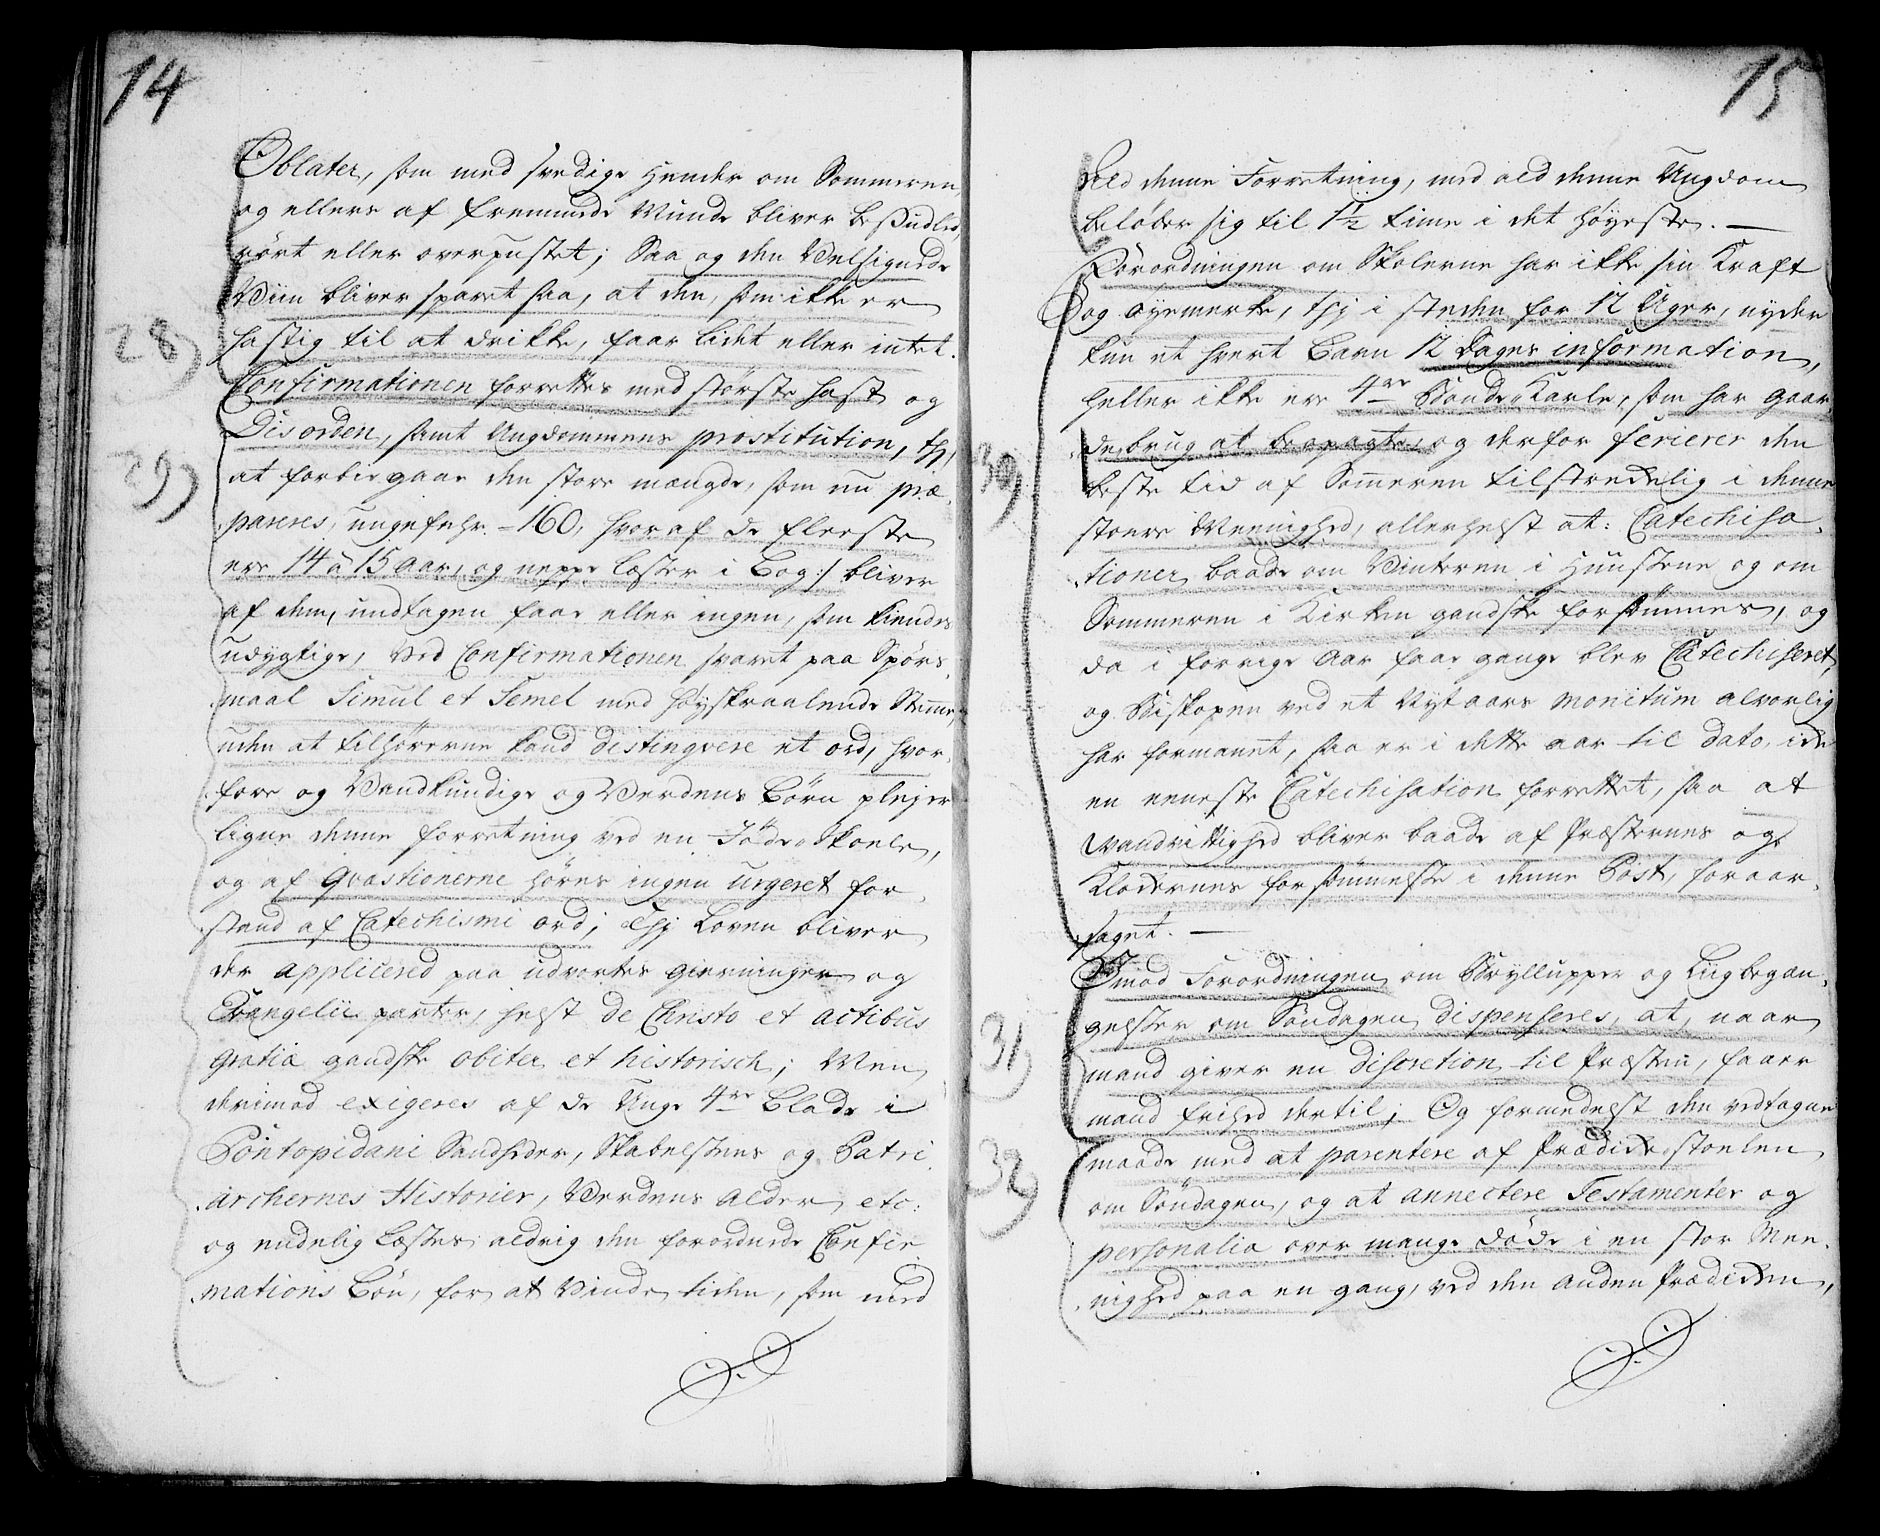 14
Oblater, som med svedige Hænder om Sommeren
og ellers af fremmede Munde bliver besudlet,
rört eller overpustet; Saa og den Velsignede
Viin bliver sparet saa, at den, som ikke er
28)
hastig til at drikke, faar lidet eller intet.
Confirmationen forrettes med störste hast og
Disorden, samt Ungdommens prostitution, thj,
29)
at forbiegaae den store mængde, som nu præ-
pareres, ungefehr -160, hvoraf de fleeste
ere 14 à 15 Aar, og neppe læsser i Bog:/ bliver
af dem, undtagen faae eller ingen, som kiendes
udygtige, ved Confirmationen svaret paa Spörs-
maal Simul et Semel med höyskraalende Stemme,
uden at tilhörerne kand distingvere et ord, hvor-
fore og Vandkundige og Verdens Börn plejer
ligne denne forretning ved en Jöde-Skoele,
og af Qvæstionerne höres ingen urgeret for-
stand af Catechismi ord; Thj Loven bliver
der applicered paa udvortes gierninger og
Evangelii parter, helst de Christo et actibus
gratia gandske obiter et historisch; Men
derimod exigeres af de Unge 4re Blade i
Pontopidani Sandheder, Skabelsens og Patri-
archernes Historier, Verdens Alder etc:
og endelig læsses aldrig den forordnede Confir-
mations Bön, for at Vinde tiden, som med
15
all denne Forretning, med all denne Ungdom
belöber sig til 1½ time i det höyeste. —
Forordningen om Skolerne har ikke sin Kraft
og öyemerke, thj i steden for 12 Uger, nyder
kun et hvert Barn 12 Dages information,
heller ikke ere 4re Bönde-Karle, som har gaar-
debrug at beopagte, og derfor ferierer den
30)
beste tid af Someren tilstrekkelig i denne
stoere Meenighed, allerhelst at: Catechisa-
tioner baade om Vinteren i Huusene og om
Sommeren i Kirken gandske forsömmes, og
da i forrige Aar faae gange blev Catechiseret,
og Biskopen ved et Nytaars monitum alvorlig
har formanet, saa er i dette aar til dato, ikke
en eeneste Catechisation forrettet, saa at
Vandvittighed bliver baade af Præsternes og
Klokkernes forsömmelse i denne Post, foraar-
saget. —
Imod Forordningen om Bryllupper og Liigbegæn-
31)
gelsser om Söndagen dispenseres, at, naar
mand giver en discretion til Præsten, faaer
mand frihed dertil; Og formedelst den vedtagne
32)
maade med at parentere af Prædikestoelen
om Söndagen, og at annectere Testamenter og
personalia over mange döde i en stor Mee-
nighed paa en gang, ved den anden Prædiken,